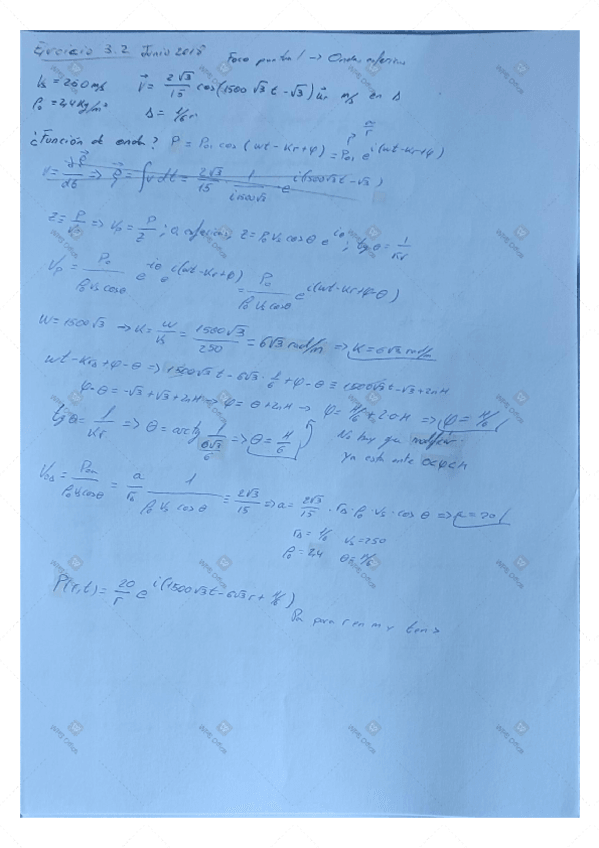 Ejercicio 3.2 Junio 2018 Foco puntual → Ondas esféricas
Vs = 250 m/s v⃗ = 2√3/15 cos(1500√3t - √3) ûr m/s en Δ
ρ₀ = 2,4 kg/m³ Δ = 1/6 r
¿Función de onda? P = P₀₁ cos(wt - Kr + φ) = P₀₁ e^i(wt - Kr + φ)
v = dρ⃗/dt ⇒ ρ⃗ = ∫v dt = 2√3/15 · 1/i1500√3 e^i(1500√3t - √3)
z = P/v ⇒ Vp = P/z ; z = ρ₀ Vs cosθ e^iθ ; tgθ = 1/Kr
Vp = P₀/ρ₀Vs cosθ e^-iθ e^i(wt - Kr + φ) = P₀/ρ₀Vs cosθ e^i(wt - Kr + φ - θ)
w = 1500√3 → K = w/Vs = 1500√3/250 = 6√3 rad/m ⇒ K = 6√3 rad/m
wt - KrΔ + φ - θ ⇒ 1500√3t - 6√3 · 1/6 + φ - θ = 1500√3t - √3 + 2nπ
φ - θ = -√3 + √3 + 2nπ ⇒ φ = θ + 2nπ → φ = π/6 + 2nπ ⇒ φ = π/6
tgθ = 1/Kr ⇒ θ = arctg 1/(6√3/6) ⇒ θ = π/6 No hay que modificar.
Ya está entre 0<φ<π
V₀Δ = P₀Δ/ρ₀Vs cosθ = a/rΔ · 1/ρ₀ Vs cosθ = 2√3/15 ⇒ a = 2√3/15 · rΔ · ρ₀ · Vs · cosθ ⇒ a = 20
rΔ = 1/6 Vs = 250
ρ₀ = 2,4 θ = π/6
P(r,t) = 20/r e^i(1500√3t - 6√3r + π/6)
Pa para r en m y t en s